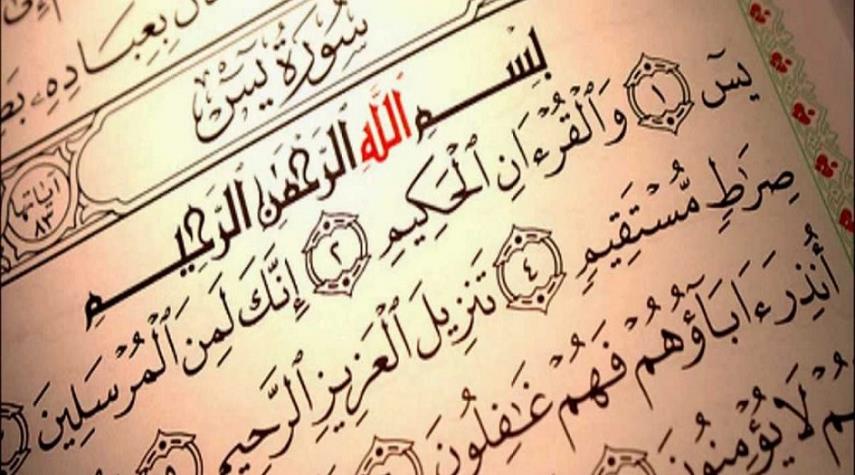 بِعِبَادِهِۦ
سُورَةُ يسٓ
ءَايَاتُهَا
٨٣
بِسْمِ ٱللَّهِ ٱلرَّحْمَٰنِ ٱلرَّحِيمِ
يسٓ ١ وَٱلْقُرْءَانِ ٱلْحَكِيمِ ٢ إِنَّكَ لَمِنَ ٱلْمُرْسَلِينَ
صِرَٰطٍ مُّسْتَقِيمٍ ٤ تَنزِيلَ ٱلْعَزِيزِ ٱلرَّحِيمِ
أُنذِرَ ءَابَآؤُهُمْ فَهُمْ غَٰفِلُونَ
لَا يُؤْمِنُونَ